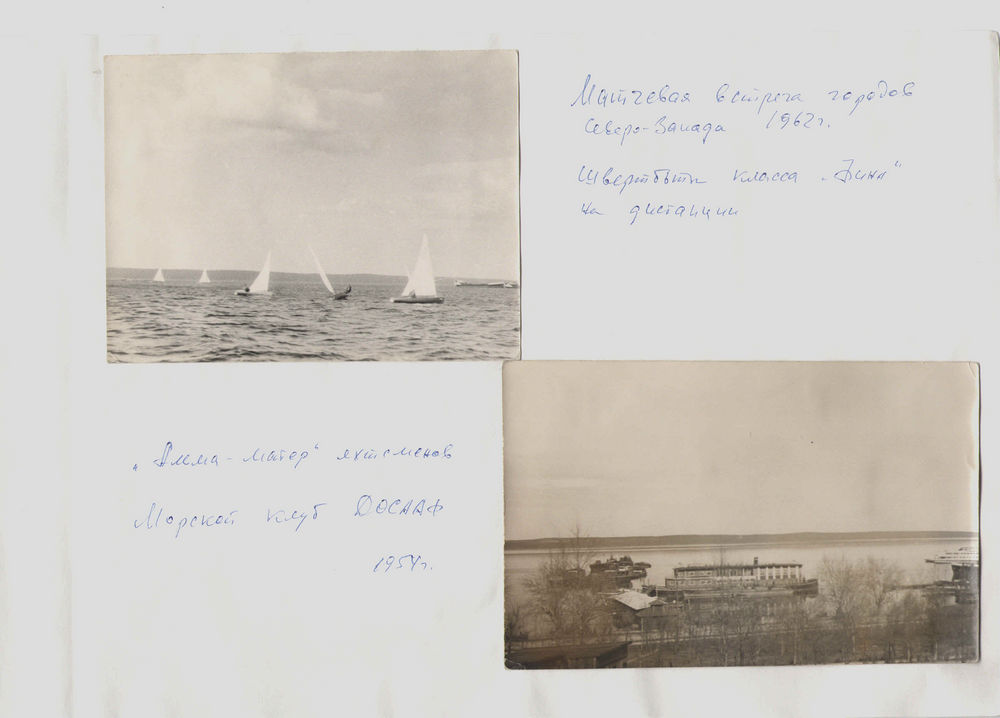 Матчевая встреча городов
Северо-Запада 1962г.
Швертботы класса „Финн"
на дистанции
„Альма-матер" яхтсменов
Морской клуб ДОСААФ
1954г.